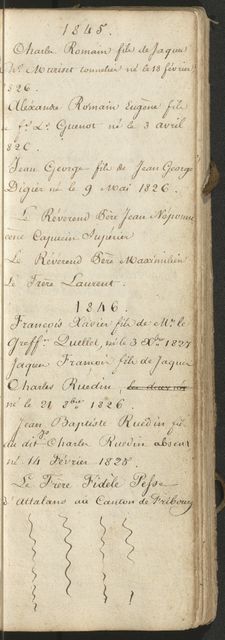 1845.
Charles Romain fils de Jaques
Ds. Marist tonnelier né le 18 février
1826.
Alexandre Romain Eugène fils
de fs. Ls. Guenot né le 3 avril
1826.
Jean George fils de Jean George
Digier né le 9 Mai 1826.
Le Révérend Père Jean Népomu-
cène Capucin Supérieur
Le Révérend Père Maximilien
Le Frère Laurent.
1846.
François Xavier fils de Mr. le
Greffr. Quellet, né le 3 Xbre 1827
Jaques François fils de Jaques
Charles Ruedin,
né le 21 8bre 1826.
Jean Baptiste Ruedin fils
du dit Charles Ruedin absent
né 14 Février 1828.
Le Frère Fidèle Pesse
d'Attalans au Canton de Fribourg